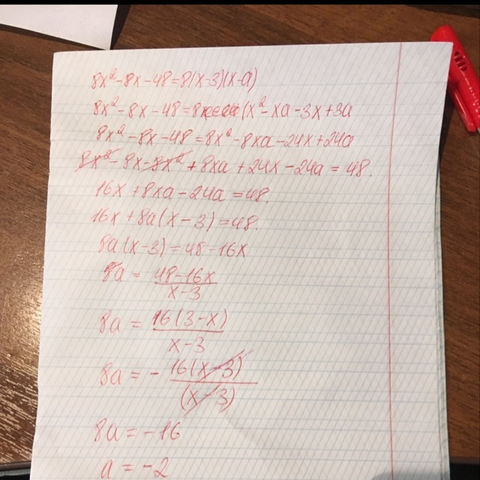 8x²-8x-48=8(x-3)(x-a)
8x²-8x-48=8(x²-xa-3x+3a
8x²-8x-48=8x²-8xa-24x+24a
8x²-8x-8x²+8xa+24x-24a=48.
16x+8xa-24a=48.
16x+8a(x-3)=48.
8a(x-3)=48-16x
8a=\frac{48-16x}{x-3}
8a=\frac{16(3-x)}{x-3}
8a=-\frac{16(x-3)}{(x-3)}
8a=-16
a=-2